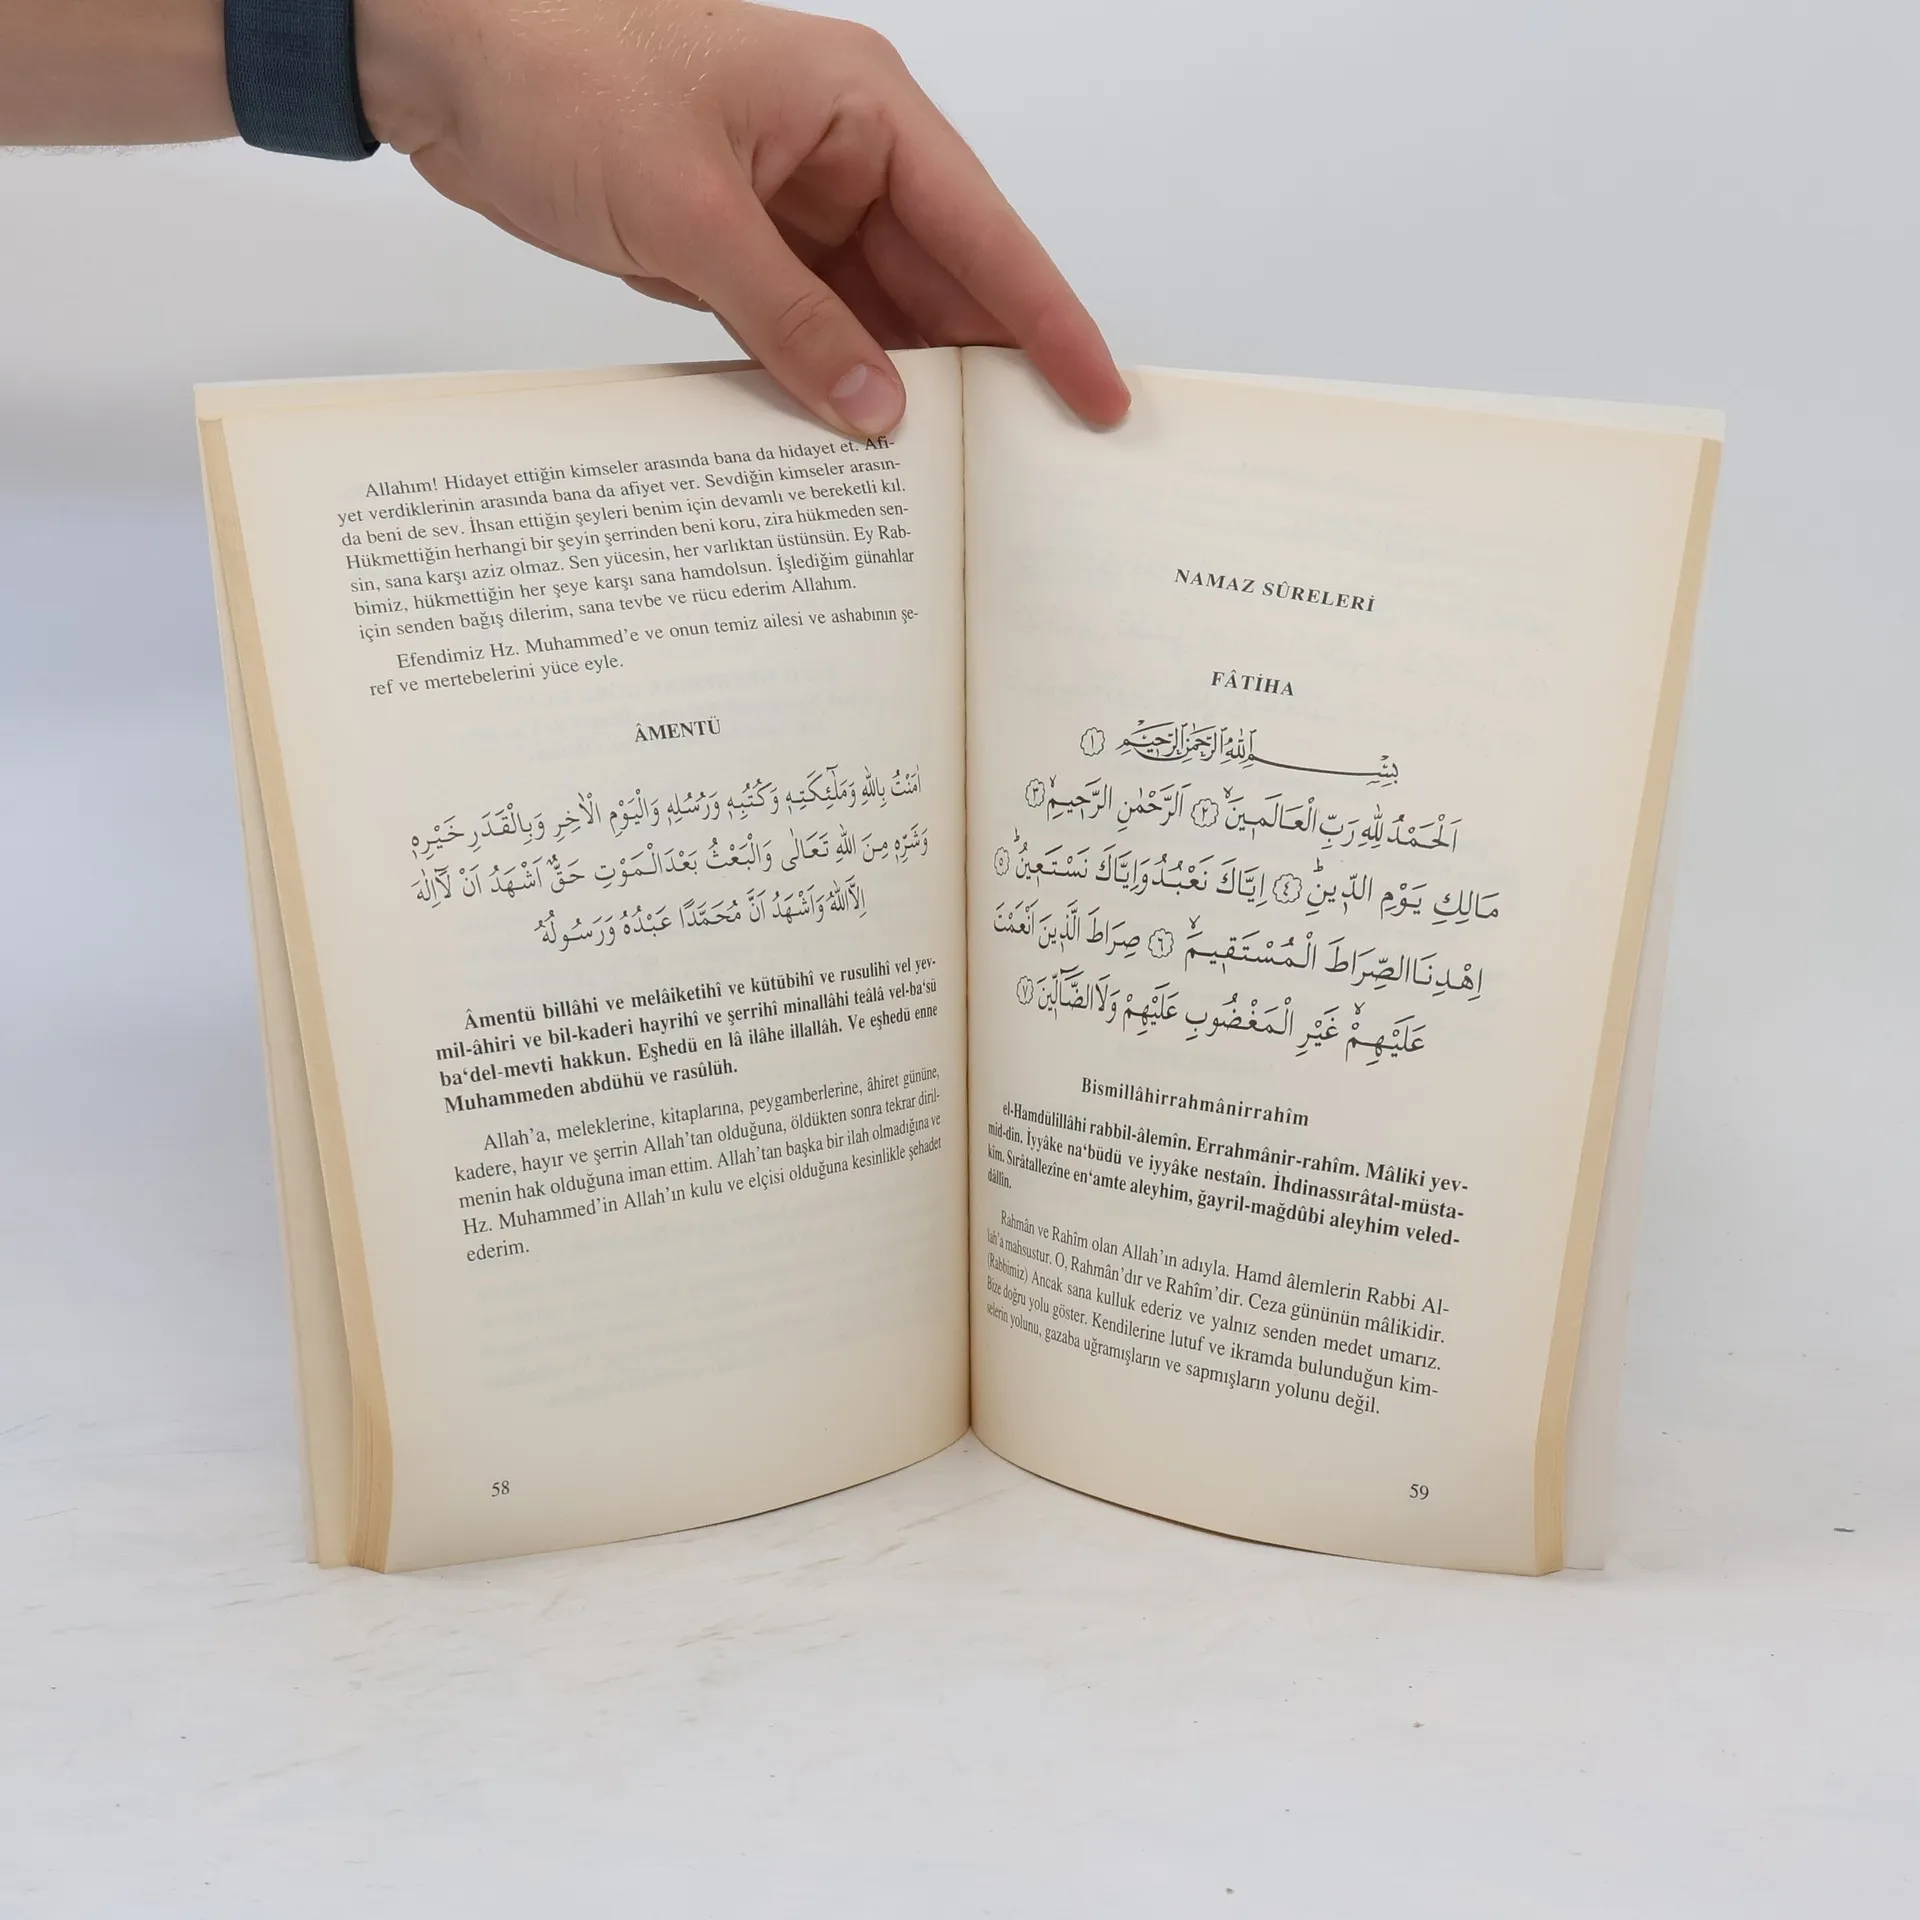 Allahım! Hidayet ettiğin kimseler arasında bana da hidayet et. Afi-
yet verdiklerinin arasında bana da afiyet ver. Sevdiğin kimseler arasın-
da beni de sev. İhsan ettiğin şeyleri benim için devamlı ve bereketli kıl.
Hükmettiğin herhangi bir şeyin şerrinden beni koru, zira hükmeden sen-
sin, sana karşı aziz olmaz. Sen yücesin, her varlıktan üstünsün. Ey Rab-
bimiz, hükmettiğin her şeye karşı sana hamdolsun. İşlediğim günahlar
için senden bağış dilerim, sana tevbe ve rücu ederim Allahım.
Efendimiz Hz. Muhammed'e ve onun temiz ailesi ve ashabının şe-
ref ve mertebelerini yüce eyle.
ÂMENTÜ
اٰمَنْتُ بِاللّٰهِ وَمَلٰٓئِكَتِهٖ وَكُتُبِهٖ وَرُسُلِهٖ وَالْيَوْمِ الْاٰخِرِ وَبِالْقَدَرِ خَيْرِهٖ
وَشَرِّهٖ مِنَ اللّٰهِ تَعَالٰى وَالْبَعْثُ بَعْدَ الْمَوْتِ حَقٌّ اَشْهَدُ اَنْ لَٓا اِلٰهَ
اِلَّا اللّٰهُ وَاَشْهَدُ اَنَّ مُحَمَّدًا عَبْدُهُ وَرَسُولُهُ
Âmentü billâhi ve melâiketihî ve kütübihî ve rusulihî vel yev-
mil-âhiri ve bil-kaderi hayrihî ve şerrihî minallâhi teâlâ vel-ba‘sü
ba‘del-mevti hakkun. Eşhedü en lâ ilâhe illallâh. Ve eşhedü enne
Muhammeden abdühü ve rasûlüh.
Allah'a, meleklerine, kitaplarına, peygamberlerine, âhiret gününe,
kadere, hayır ve şerrin Allah'tan olduğuna, öldükten sonra tekrar diril-
menin hak olduğuna iman ettim. Allah'tan başka bir ilah olmadığına ve
Hz. Muhammed'in Allah'ın kulu ve elçisi olduğuna kesinlikle şehadet
ederim.
58
NAMAZ SÛRELERİ
FÂTİHA
بِسْمِ اللّٰهِ الرَّحْمٰنِ الرَّحِيمِ ﴿١﴾
اَلْحَمْدُ لِلّٰهِ رَبِّ الْعَالَمِينَۙ ﴿٢﴾ اَلرَّحْمٰنِ الرَّحِيمِۙ ﴿٣﴾
مَالِكِ يَوْمِ الدِّينِۜ ﴿٤﴾ اِيَّاكَ نَعْبُدُ وَاِيَّاكَ نَسْتَعِينُۜ ﴿٥﴾
اِهْدِنَا الصِّرَاطَ الْمُسْتَقِيمَۙ ﴿٦﴾ صِرَاطَ الَّذِينَ اَنْعَمْتَ
عَلَيْهِمْۙ غَيْرِ الْمَغْضُوبِ عَلَيْهِمْ وَلَا الضَّٓالِّينَ ﴿٧﴾
Bismillâhirrahmânirrahîm
el-Hamdülillâhi rabbil-âlemîn. Errahmânir-rahîm. Mâliki yev-
mid-din. İyyâke na‘büdü ve iyyâke nestaîn. İhdinassırâtal-müsta-
kim. Sırâtallezîne en‘amte aleyhim, ğayril-mağdûbi aleyhim veled-
dâllîn.
Rahmân ve Rahîm olan Allah'ın adıyla. Hamd âlemlerin Rabbi Al-
lah'a mahsustur. O, Rahmân'dır ve Rahîm'dir. Ceza gününün mâlikidir.
(Rabbimiz) Ancak sana kulluk ederiz ve yalnız senden medet umarız.
Bize doğru yolu göster. Kendilerine lutuf ve ikramda bulunduğun kim-
selerin yolunu, gazaba uğramışların ve sapmışların yolunu değil.
59